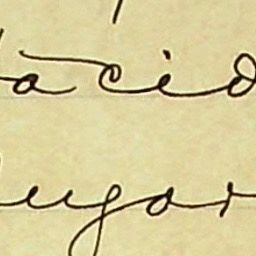 acid
ugar